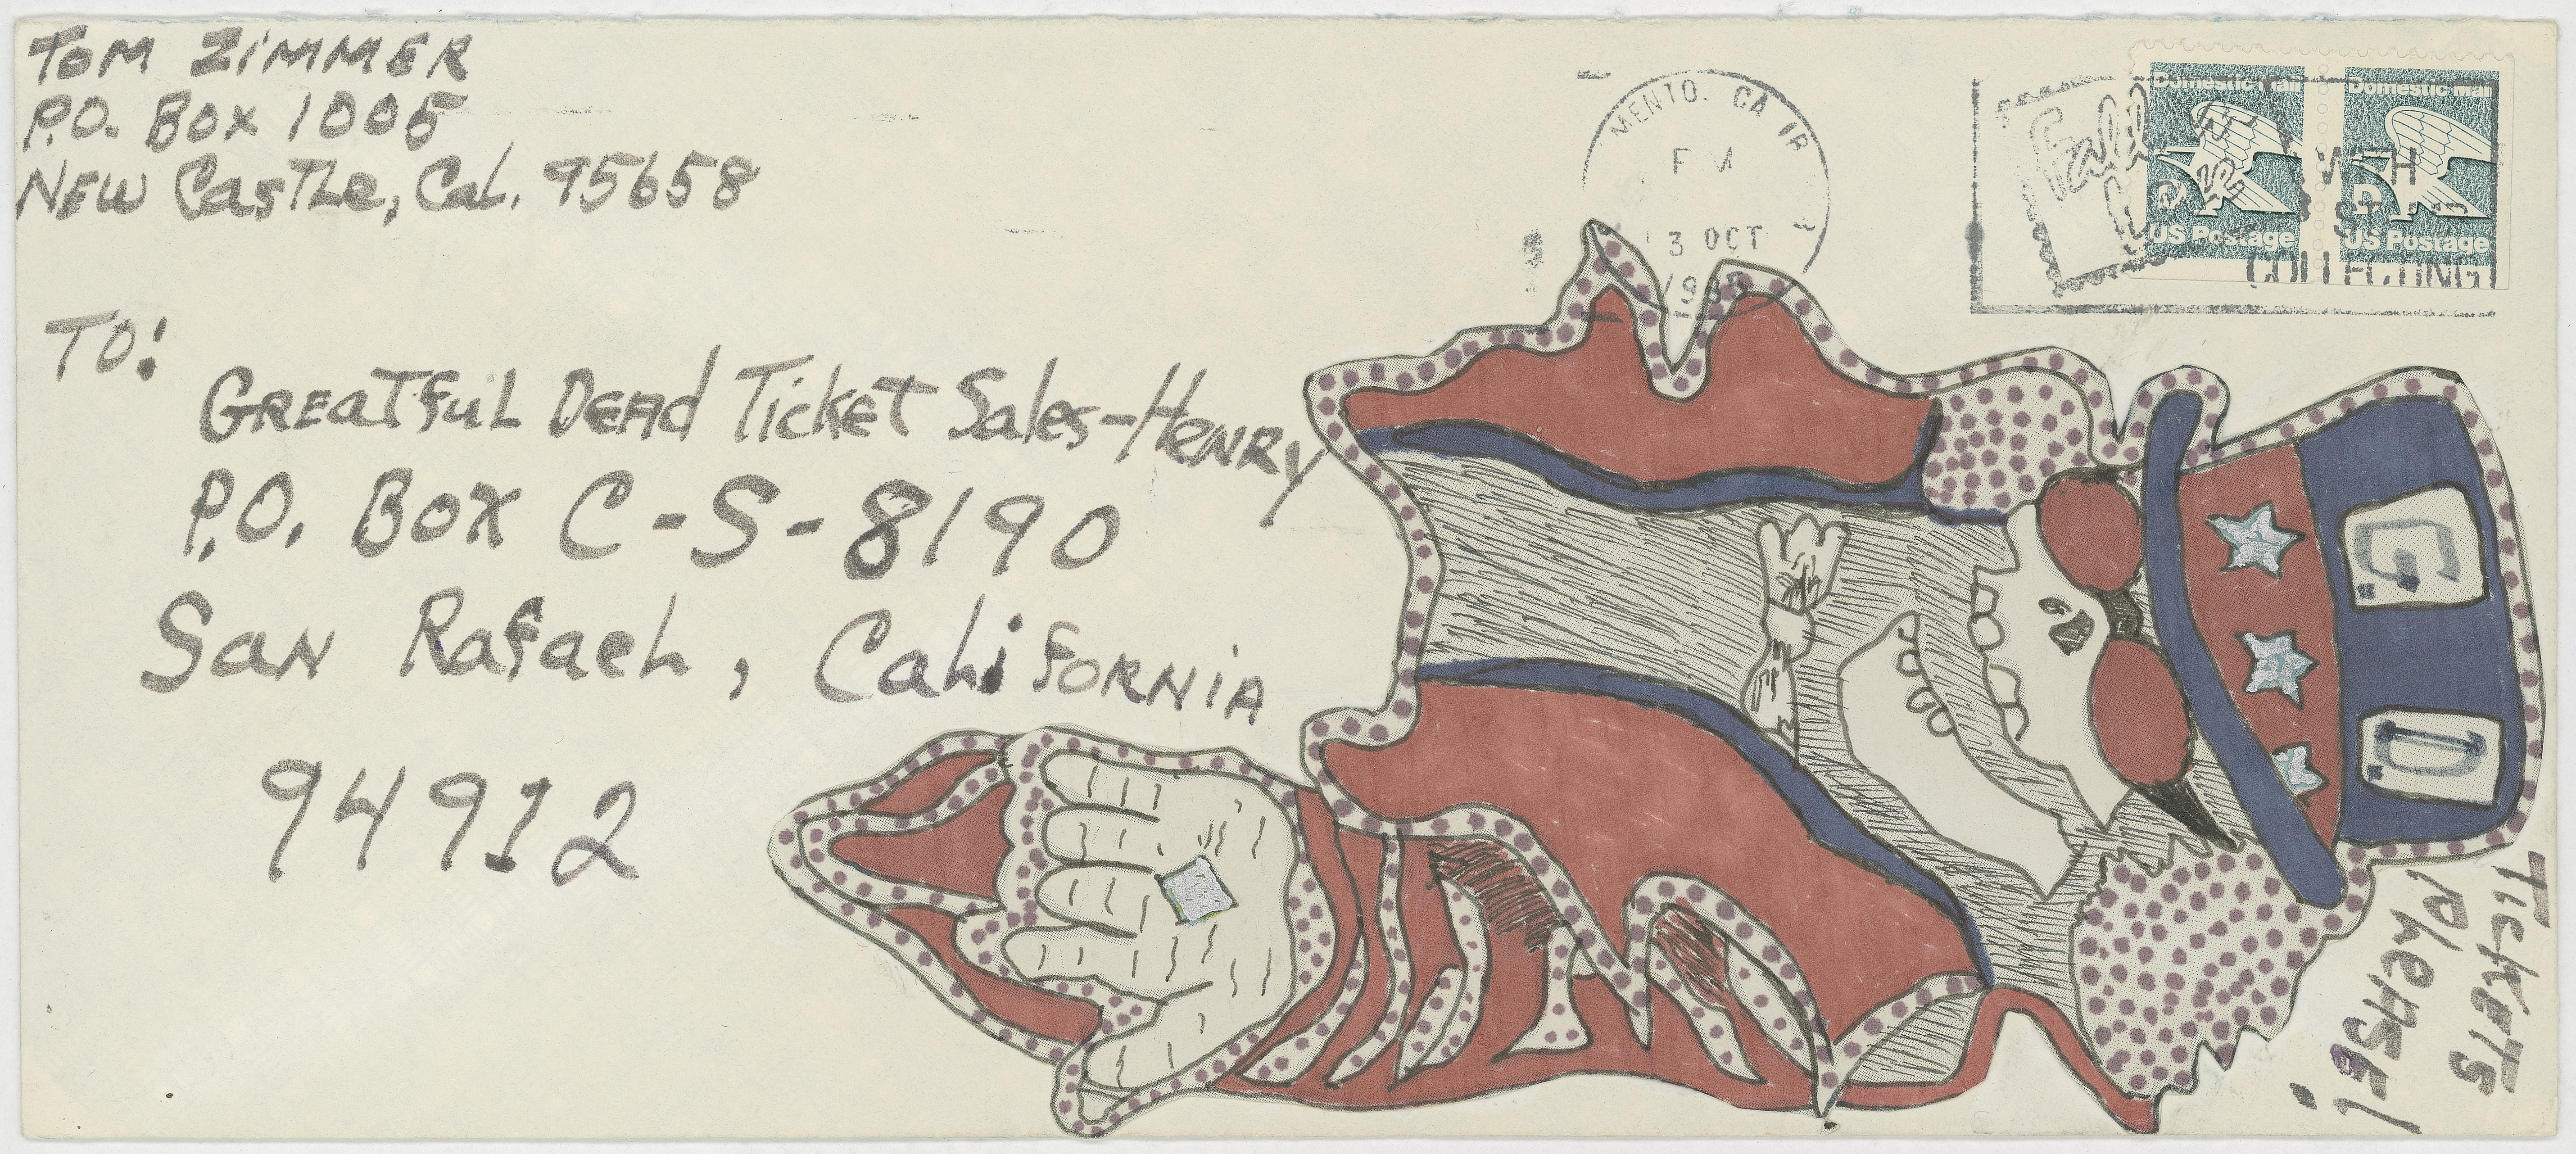 Tom Zimmer
P.O. Box 1005
New Castle, Cal. 95658
To:
Greatful Dead Ticket Sales-Henry
P.O. Box C-S-8190
San Rafael, California
94912
MENTO. CA
3 OCT
Domestic Mail
D
US Postage
Domestic Mail
D
US Postage
COLLECTING!
G.
D.
Tickets
Please!